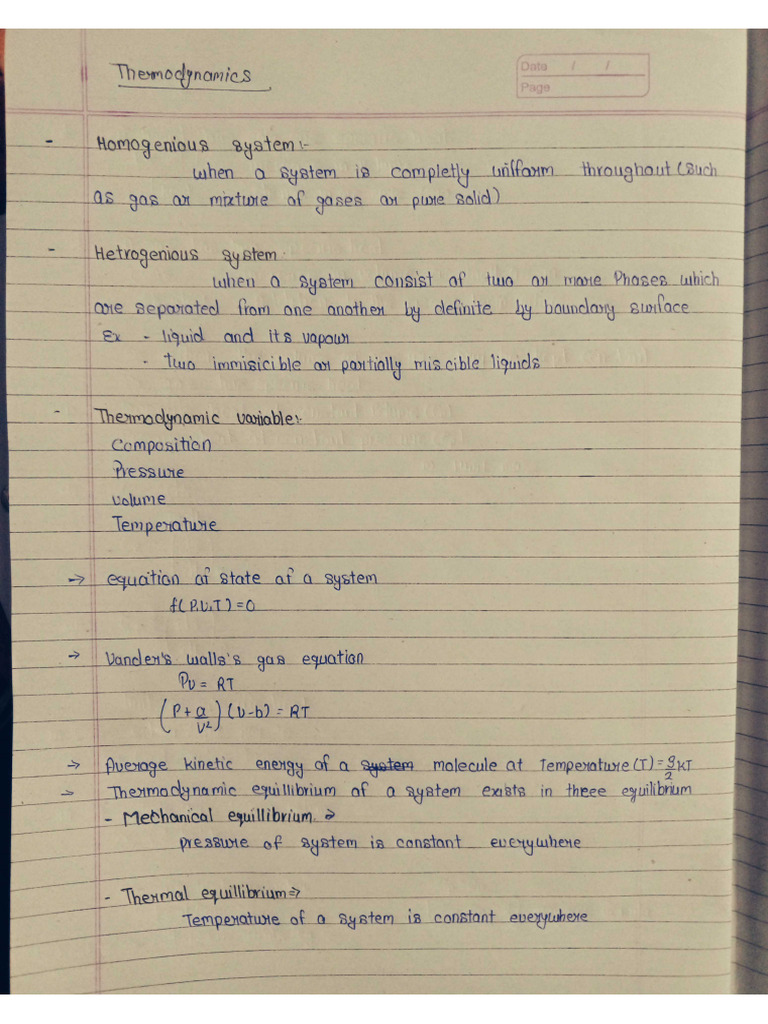 Thermodynamics
Date / /
Page
- Homogenious system:-
when a system is completly uniform throughout (such
as gas or mixture of gases or pure solid)
- Hetrogenious system
when a system consist of two or more Phases which
are separated from one another by definite by boundary surface
Ex - liquid and its vapour
- two immisicible or partially miscible liquids
- Thermodynamic variable:-
Composition
Pressure
volume
Temperature
→ equation of state of a system
f(P,V,T)=0
→ Vander's walls's gas equation
PV = RT
(P + a/V²) (V-b) = RT
→ Average kinetic energy of a system molecule at Temperature (T) = 3/2 KT
→ Thermodynamic equillibrium of a system exists in threee equilibrium
- Mechanical equillibrium ⇒
pressure of system is constant everywhere
- Thermal equillibrium ⇒
Temperature of a system is constant everywhere